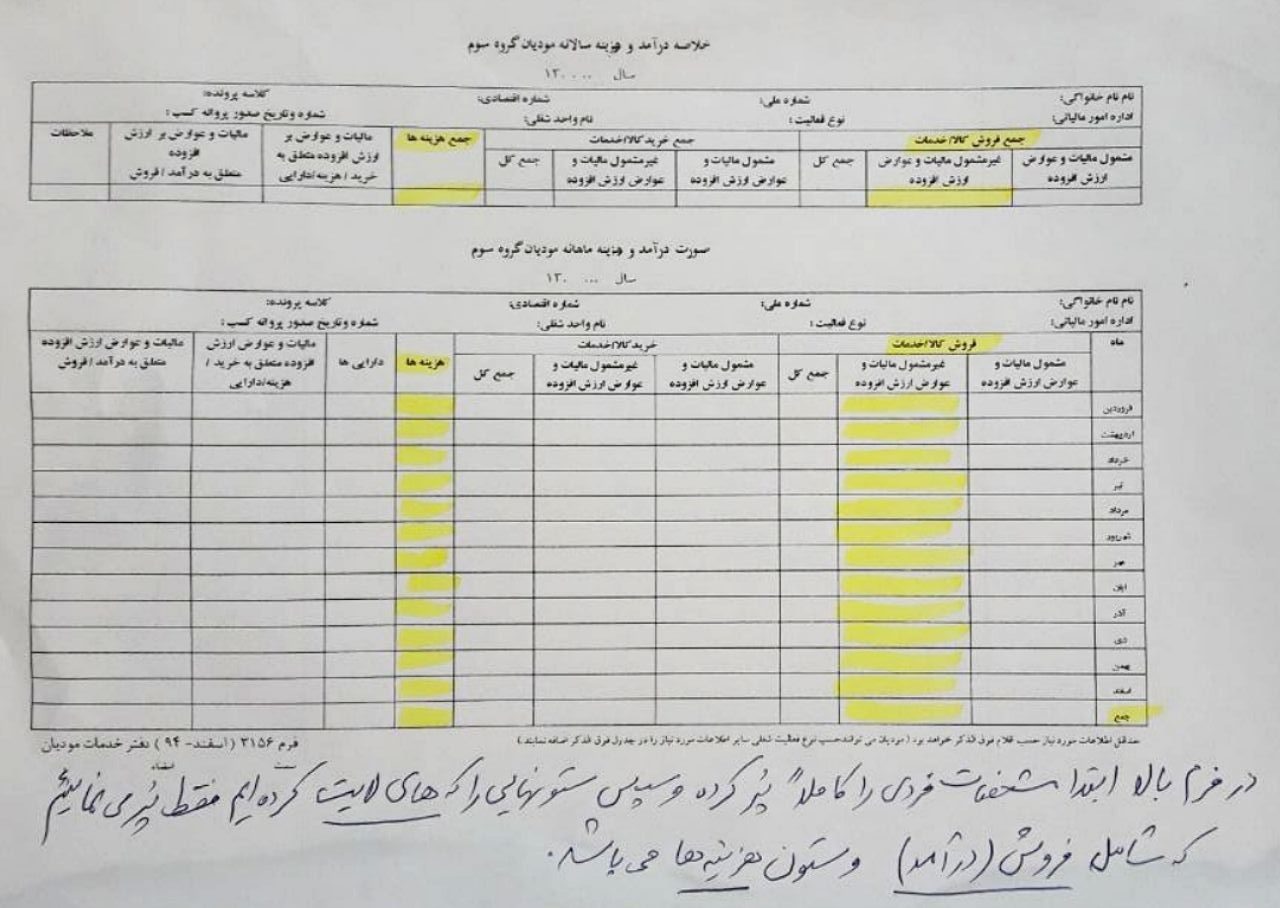 خلاصه درآمد و هزینه سالانه مودیان گروه سوم
سال ۱۳۰۰...
نام نام خانوادگی: شماره ملی: شماره اقتصادی: کلاسه پرونده:
اداره امور مالیاتی: نوع فعالیت: نام واحد شغلی: شماره وتاریخ صدور پروانه کسب:
جمع فروش کالا/خدمات
جمع خرید کالا/خدمات
جمع هزینه ها
مالیات و عوارض بر ارزش افزوده متعلق به خرید / هزینه/دارایی
مالیات و عوارض بر ارزش افزوده متعلق به درآمد / فروش
ملاحظات
مشمول مالیات و عوارض ارزش افزوده
غیرمشمول مالیات و عوارض ارزش افزوده
جمع کل
مشمول مالیات و عوارض ارزش افزوده
غیرمشمول مالیات و عوارض ارزش افزوده
جمع کل
صورت درآمد و هزینه ماهانه مودیان گروه سوم
سال ... ۱۳۰
نام نام خانوادگی: شماره ملی: شماره اقتصادی: کلاسه پرونده:
اداره امور مالیاتی: نوع فعالیت: نام واحد شغلی: شماره وتاریخ صدور پروانه کسب:
ماه
فروش کالا/خدمات
خرید کالا/خدمات
هزینه ها
دارایی ها
مالیات و عوارض ارزش افزوده متعلق به خرید / هزینه/دارایی
مالیات و عوارض ارزش افزوده متعلق به درآمد / فروش
مشمول مالیات و عوارض ارزش افزوده
غیرمشمول مالیات و عوارض ارزش افزوده
جمع کل
مشمول مالیات و عوارض ارزش افزوده
غیرمشمول مالیات و عوارض ارزش افزوده
جمع کل
فروردین
اردیبهشت
خرداد
تیر
مرداد
شهریور
مهر
ابان
آذر
دی
بهمن
اسفند
جمع
حداقل اطلاعات مورد نیاز حسب اقلام فوق الذکر خواهد بود ( مودیان می توانند حسب نوع فعالیت شغلی سایر اطلاعات مورد نیاز را در جدول فوق الذکر اضافه نمایند )
فرم ۳۱۵۶ ( اسفند- ۹۴ ) دفتر خدمات مودیان
در فرم بالا ابتدا مشخصات فردی را کاملاً پر کرده و سپس ستونهایی را که های لایت کرده ایم فقط پر می نمائیم
که شامل فروش (درآمد) و ستون هزینه ها می باشد.